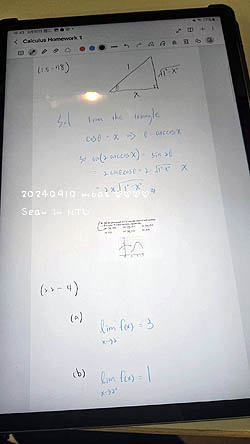 Calculus Homework 1
(1.5-48)
1
√1²-x²
x
Sol from the triangle
cosθ = x ⇒ θ = arccosx
so sin(2arccosx) = sin2θ
= 2sinθcosθ = 2·√1²-x²·x
= 2x√1²-x² #
20240910
Sean in NTU
(2.2-4)
(a)
lim f(x) = 3
x→2⁻
(b)
lim f(x) = 1
x→2⁺